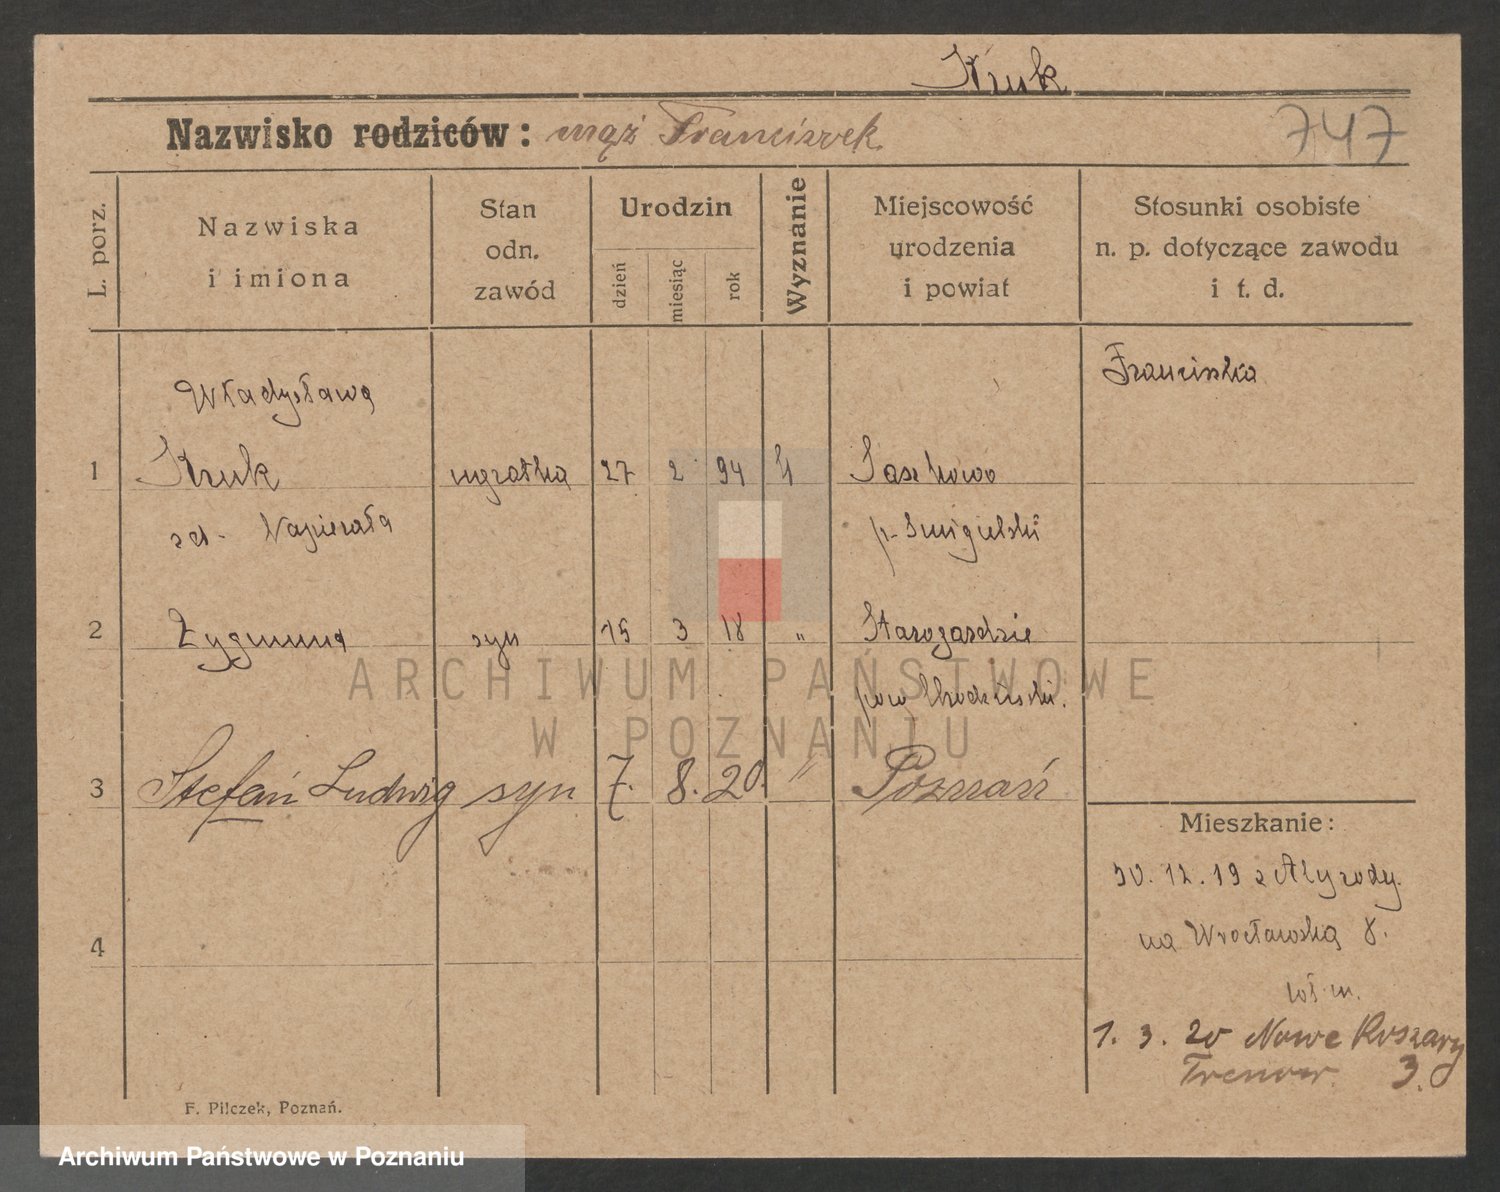 Kruk
Nazwisko rodziców: mąż Franciszek
747
L. porz.
Nazwiska i imiona
Stan odn. zawód
Urodzin
dzień miesiąc rok
Wyznanie
Miejscowość urodzenia i powiat
Stosunki osobiste n. p. dotyczące zawodu i t. d.
Władysława Franciszka
1 Kruk mężatka 27 2 94 k Jaszkowo
zd. Napierała p. Śmigielski
2 Zygmund syn 15 3 18 " Starogardzie
pow.
3 Stefan Ludwig syn 7. 8. 20. " Poznań
Mieszkanie:
30. 12. 19 z
4
na Wrocławską 8.
1. 3. 20 Nowe
3.
F. Pilczek, Poznań.
ARCHIWUM PAŃSTWOWE
W POZNANIU
Archiwum Państwowe w Poznaniu